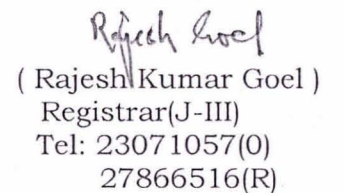 Rajesh Goel
( Rajesh Kumar Goel )
Registrar(J-III)
Tel: 23071057(0)
27866516(R)